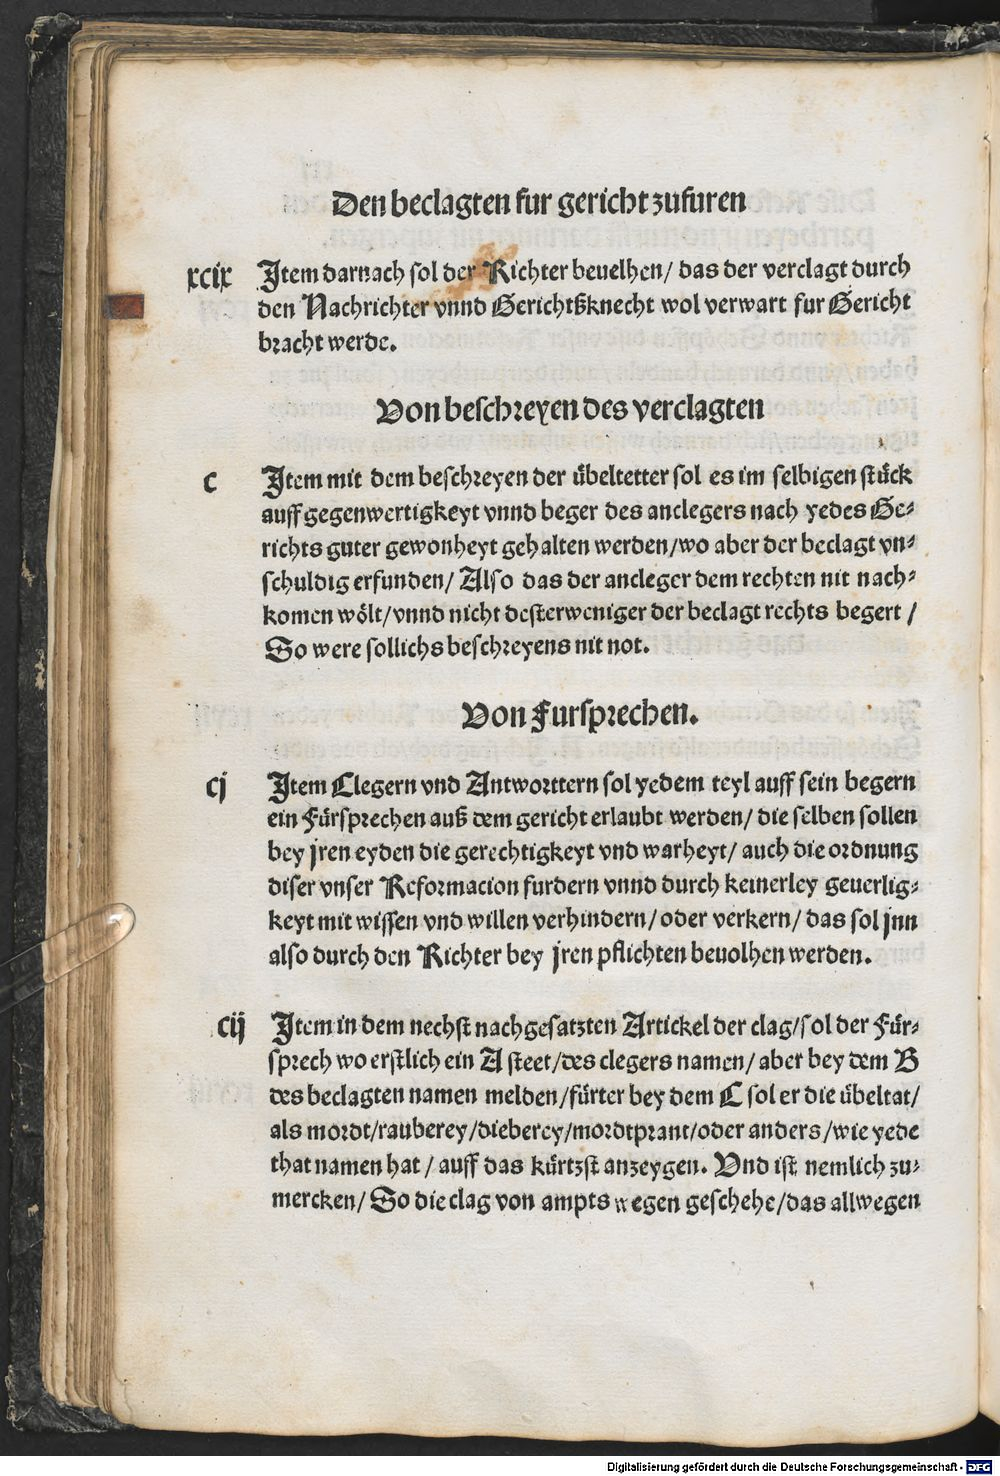 Den beclagten fur gericht zufuren
xcix Jtem darnach sol der Richter beuelhen/ das der verclagt durch
den Nachrichter vnnd Gerichtßknecht wol verwart fur Gericht
bracht werde.
Von beschreyen des verclagten
c Jtem mit dem beschreyen der übeltetter sol es im selbigen stück
auff gegenwertigkeyt vnnd beger des anclegers nach yedes Ge⸗
richts guter gewonheyt gehalten werden/wo aber der beclagt vn⸗
schuldig erfunden/ Also das der ancleger dem rechten nit nach⸗
komen wölt/vnnd nicht desterweniger der beclagt rechts begert /
So were sollichs beschreyens nit not.
Von Fursprechen.
cj Jtem Clegern vnd Antworttern sol yedem teyl auff sein begern
ein Fürsprechen auß dem gericht erlaubt werden/ die selben sollen
bey jren eyden die gerechtigkeyt vnd warheyt/ auch die ordnung
diser vnser Reformacion furdern vnnd durch keinerley geuerlig⸗
keyt mit wissen vnd willen verhindern/ oder verkern/ das sol jnn
also durch den Richter bey jren pflichten beuolhen werden.
cij Jtem in dem nechst nachgesatzten Artickel der clag/sol der Für⸗
sprech wo erstlich ein A steet/des clegers namen/ aber bey dem B
des beclagten namen melden/fürter bey dem C sol er die übeltat/
als mordt/rauberey/dieberey/mordtprant/oder anders/wie yede
that namen hat / auff das kürtzst anzeygen. Vnd ist nemlich zu⸗
mercken/ So die clag von ampts wegen geschehe/das allwegen
Digitalisierung gefördert durch die Deutsche Forschungsgemeinschaft - DFG